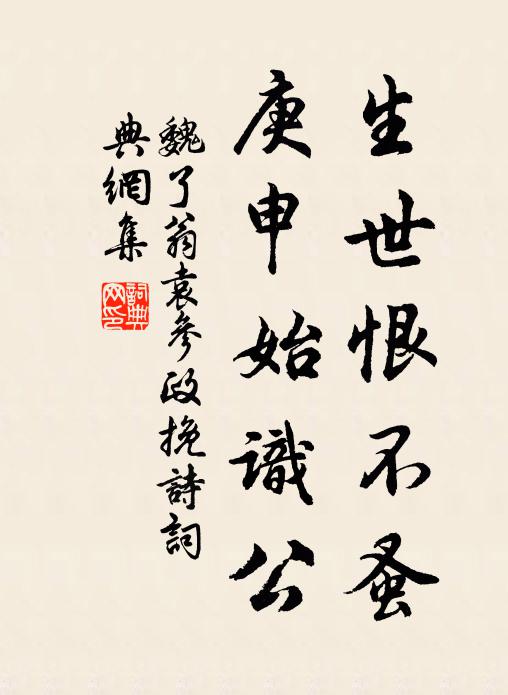 生世恨不蚤
庚申始識公
魏了翁袁參政挽詩詞
典網集
詞典網印